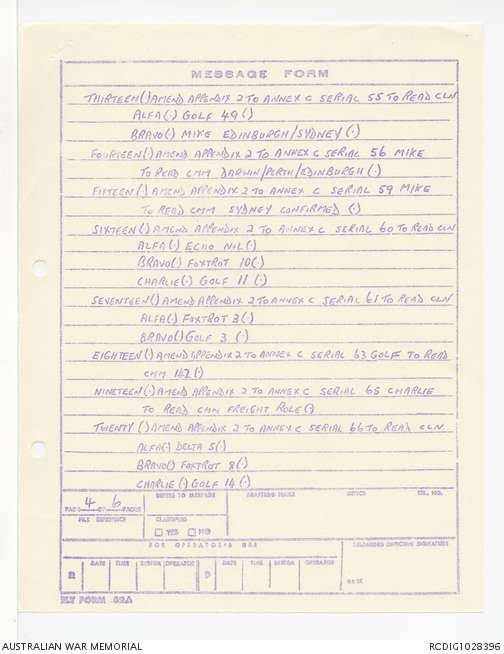 MESSAGE FORM
THIRTEEN(.) AMEND APPENDIX 2 TO ANNEX C SERIAL 55 TO READ CLN
ALFA(.) GOLF 49 (.)
BRAVO(.) MIKE EDINBURGH/SYDNEY (.)
FOURTEEN(.) AMEND APPENDIX 2 TO ANNEX C SERIAL 56 MIKE
TO READ CMM DARWIN/PERTH/EDINBURGH (.)
FIFTEEN(.) AMEND APPENDIX 2 TO ANNEX C SERIAL 59 MIKE
TO READ CMM SYDNEY CONFIRMED (.)
SIXTEEN(.) AMEND APPENDIX 2 TO ANNEX C SERIAL 60 TO READ CLN
ALFA(.) ECHO NIL(.)
BRAVO(.) FOXTROT 10(.)
CHARLIE(.) GOLF 11 (.)
SEVENTEEN(.) AMEND APPENDIX 2 TO ANNEX C SERIAL 61 TO READ CLN
ALFA(.) FOXTROT 3(.)
BRAVO(.) GOLF 3 (.)
EIGHTEEN(.) AMEND APPENDIX 2 TO ANNEX C SERIAL 63 GOLF TO READ
CMM 162(.)
NINETEEN(.) AMEND APPENDIX 2 TO ANNEX C SERIAL 65 CHARLIE
TO READ CMM FREIGHT ROLE(.)
TWENTY (.) AMEND APPENDIX 2 TO ANNEX C SERIAL 66 TO READ CLN
ALFA(.) DELTA 5(.)
BRAVO(.) FOXTROT 8(.)
CHARLIE(.) GOLF 14(.)
PAGE 4 OF 6 PAGES
REFERS TO MESSAGE
DRAFTERS NAME
OFFICE
TEL. NO.
FILE REFERENCE
CLASSIFIED
YES NO
FOR OPERATOR'S USE
RELEASING OFFICERS SIGNATURE
R DATE TIME SYSTEM OPERATOR D DATE TIME SYSTEM OPERATOR
RANK
AUSTRALIAN WAR MEMORIAL
RCDIG1028396